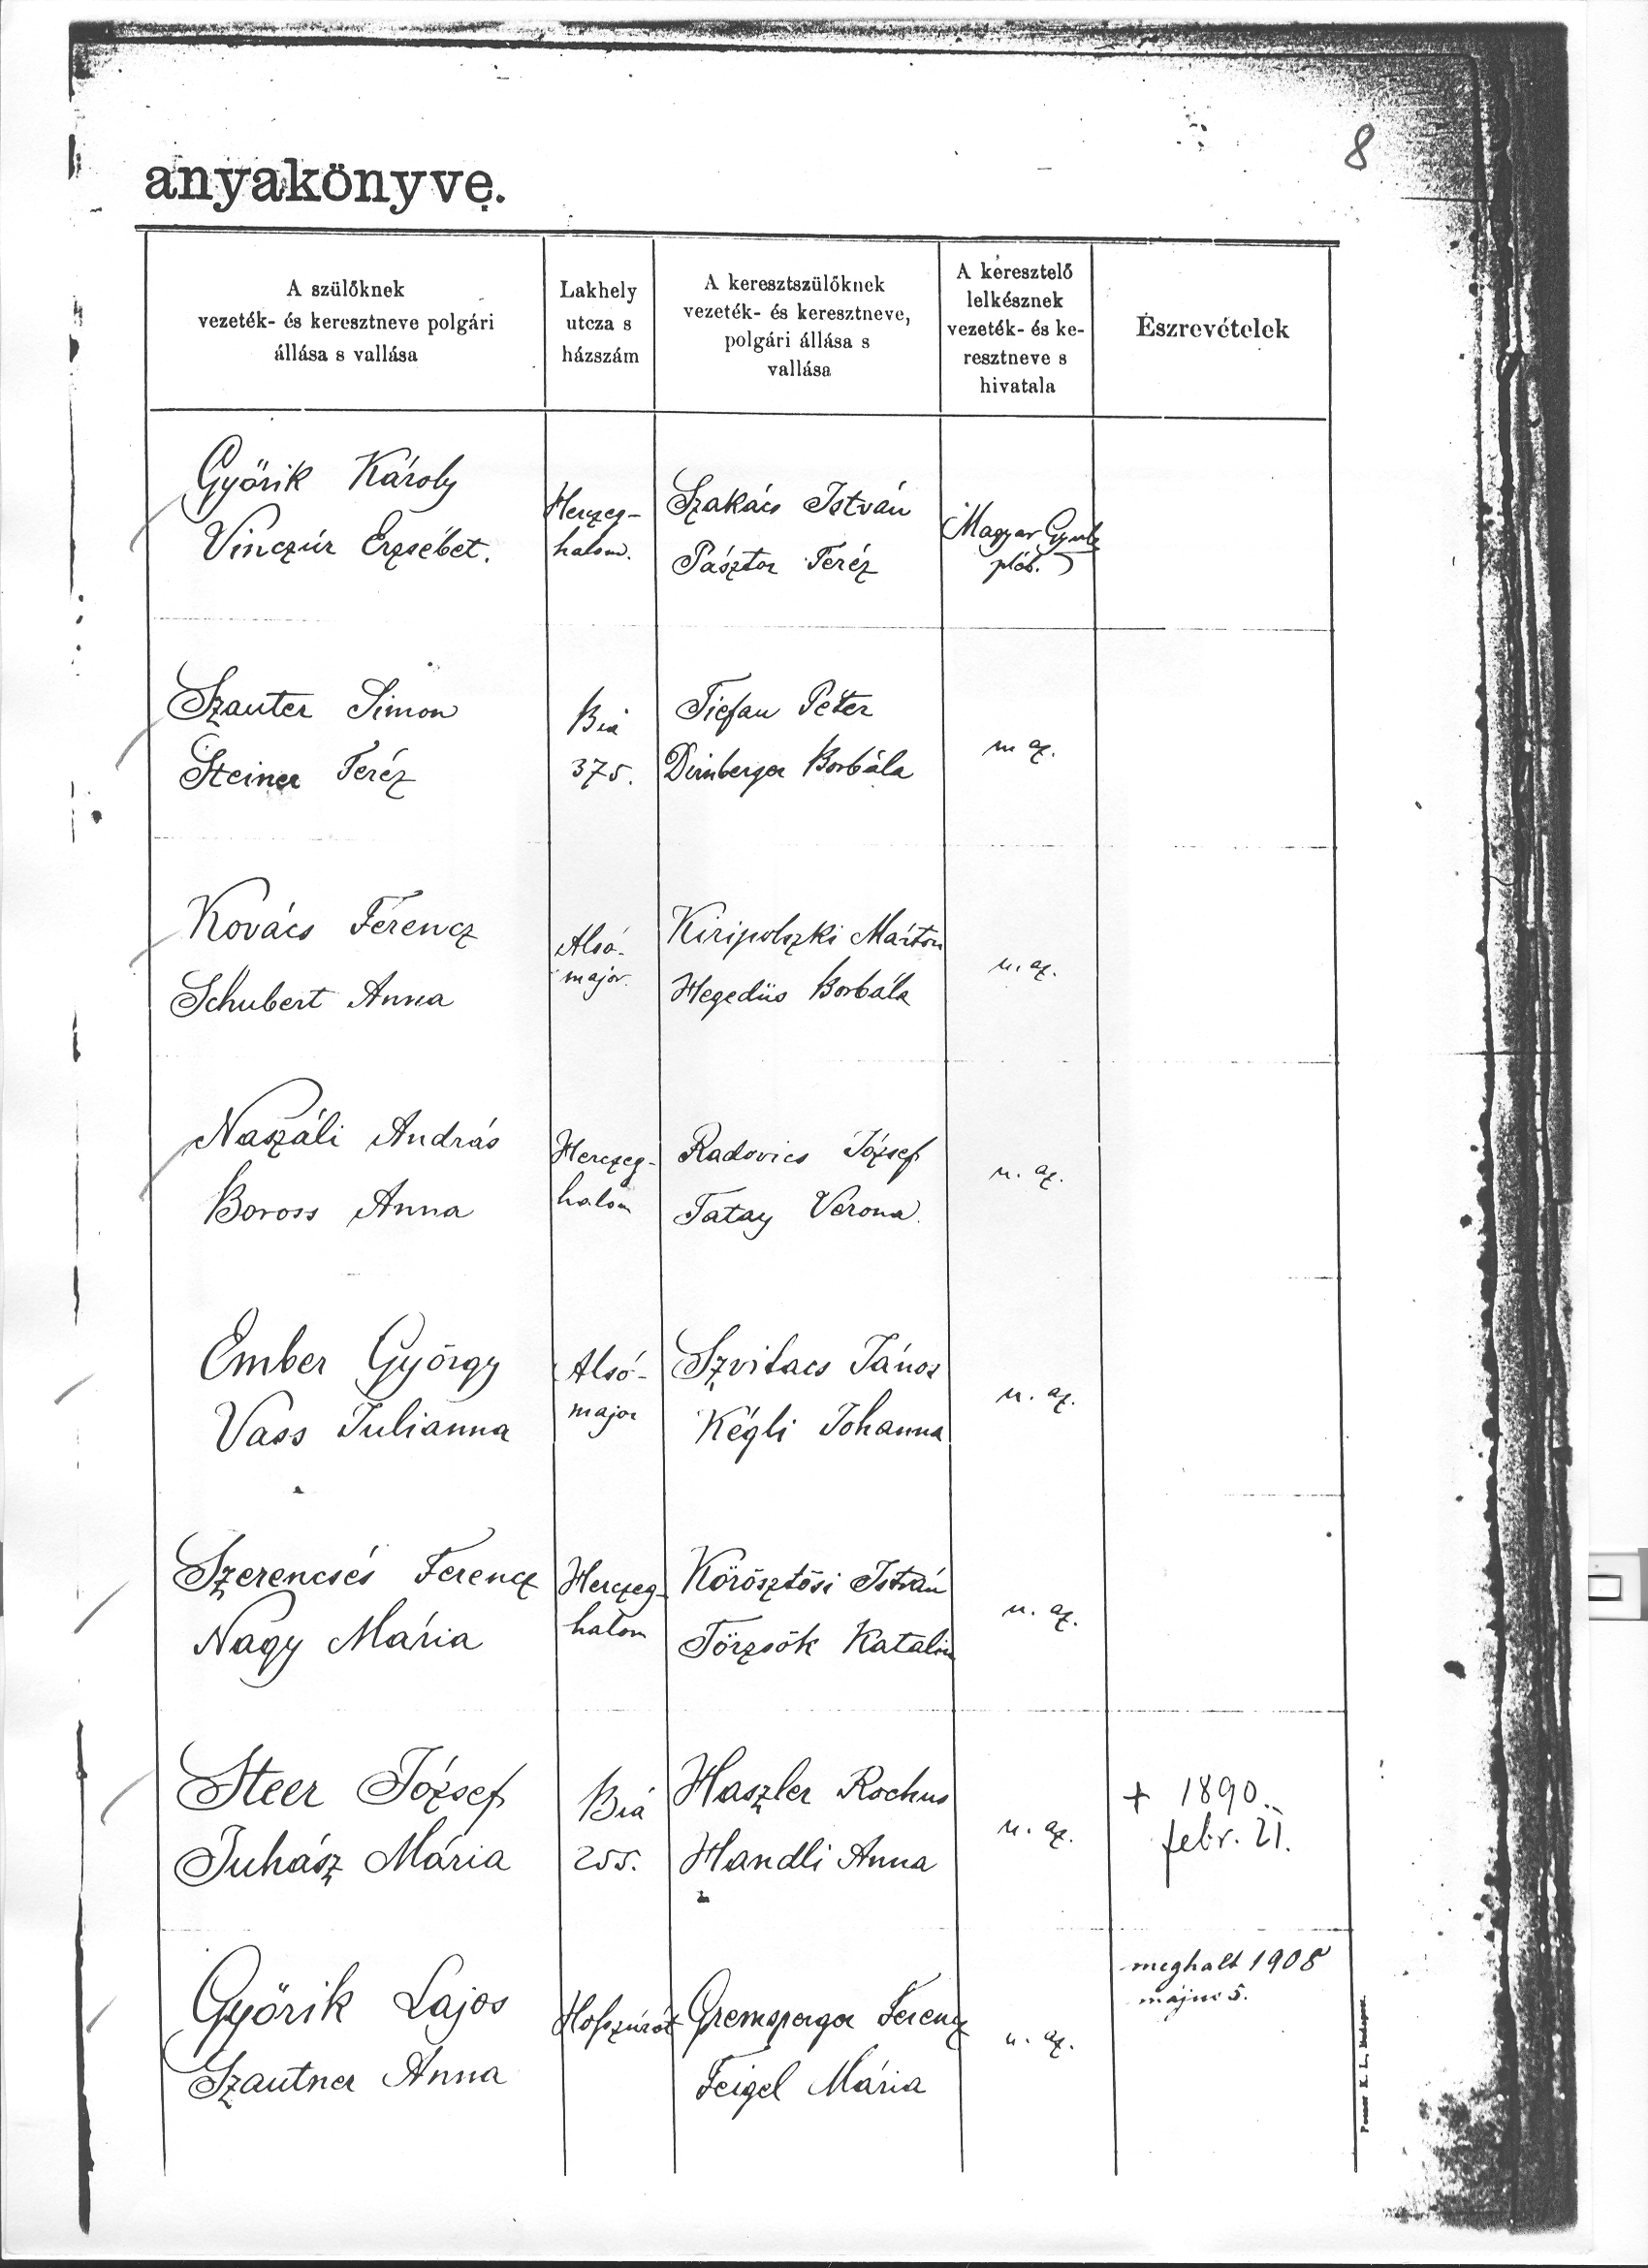 8
anyakönyve.
A szülőknek
vezeték- és keresztneve polgári
állása s vallása
Lakhely
utcza s
házszám
A keresztszülőknek
vezeték- és keresztneve,
polgári állása s
vallása
A keresztelő
lelkésznek
vezeték- és ke-
resztneve s
hivatala
Észrevételek
Győrik Károly
Vinczúr Erzsébet.
Herczeg-
halom.
Szakács István
Pásztor Teréz
Magyar Gyula
pléb.
Szauter Simon
Steiner Teréz
Bia
375.
Tiefau Péter
Dirnberger Borbála
u. az.
Kovács Ferencz
Schubert Anna
Alsó-
major.
Kiripolszki Márton
Hegedüs Borbála
u. az.
Naszáli András
Boross Anna
Herczeg-
halom
Radovics József
Tatay Verona.
u. az.
Ember György
Vass Julianna
Alsó-
major
Szvitacs János
Kégli Johanna
u. az.
Szerencsés Ferencz
Nagy Mária
Herczeg-
halom
Körösztösi István
Törzsök Katalin
u. az.
Steer József
Juhász Mária
Bia
255.
Haszler Rochus
Handli Anna
u. az.
+ 1890.
febr. 21.
Győrik Lajos
Szautner Anna
Gremsperger Ferencz
Feigel Mária
u. az.
meghalt 1908
május 5.